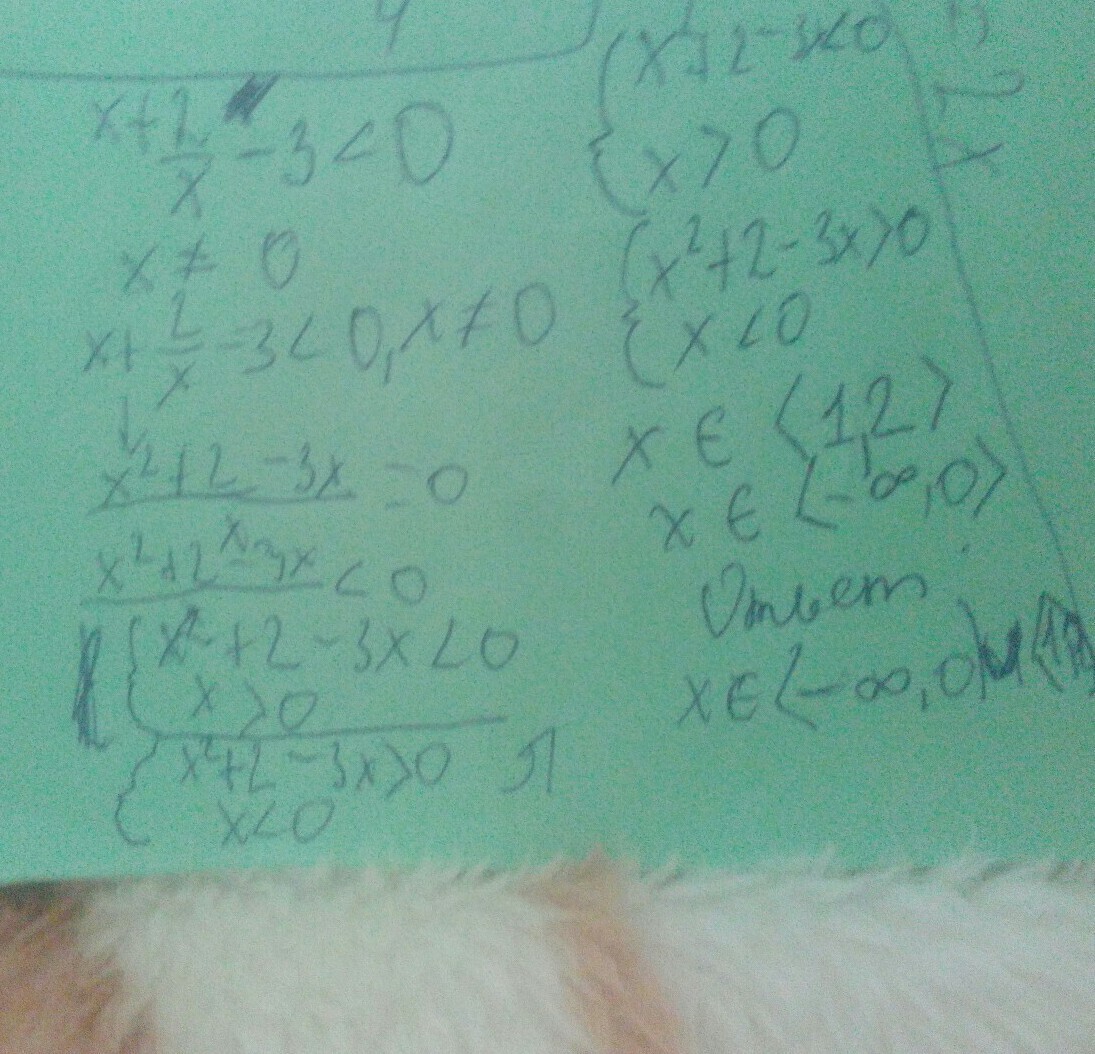 x+2/x -3<0
x ≠ 0
x+2/x -3<0, x≠0
↓
(x²+2-3x)/x =0
x²+2-3x <0
{x²+2-3x<0
x>0
{x²+2-3x>0
x<0
x>0
{x²+2-3x>0
x<0
x ∈ ⟨1,2⟩
x ∈ ⟨-∞,0⟩
Ответ
x∈⟨-∞,0⟩